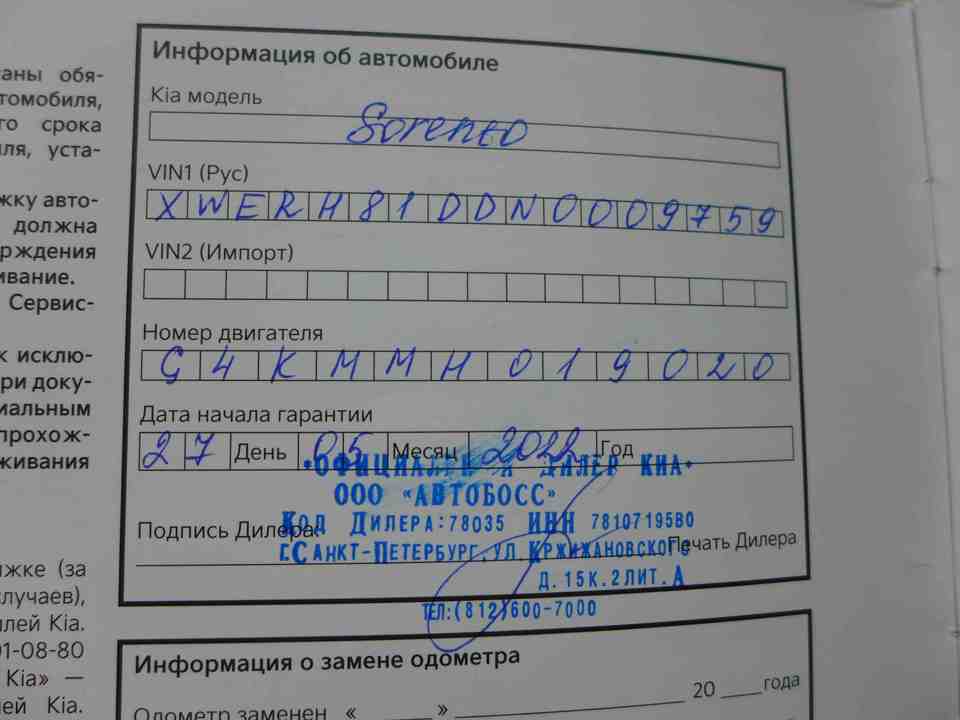 Информация об автомобиле
Kia модель
Sorento
VIN1 (Рус)
XWERH81DDN0009759
VIN2 (Импорт)
Номер двигателя
G4KMMH019020
Дата начала гарантии
27 День 05 Месяц 2022 Год
•ОФИЦИАЛЬНЫЙ ДИЛЕР КИА•
ООО «АВТОБОСС»
Код Дилера:78035 ИНН 7810719580
Подпись Дилера:
Печать Дилера
г.Санкт-Петербург,ул.Кржижановского
д.15к.2лит.А
тел:(812)600-7000
Информация о замене одометра
20 ____ года
Одометр заменен « ____ »
аны обя-
томобиля,
го срока
ля, уста-
жку авто-
должна
рждения
ивание.
Сервис-
к исклю-
ри доку-
иальным
прохож-
живания
жке (за
случаев),
лей Kia.
01-08-80
Kia» —
лей Kia.